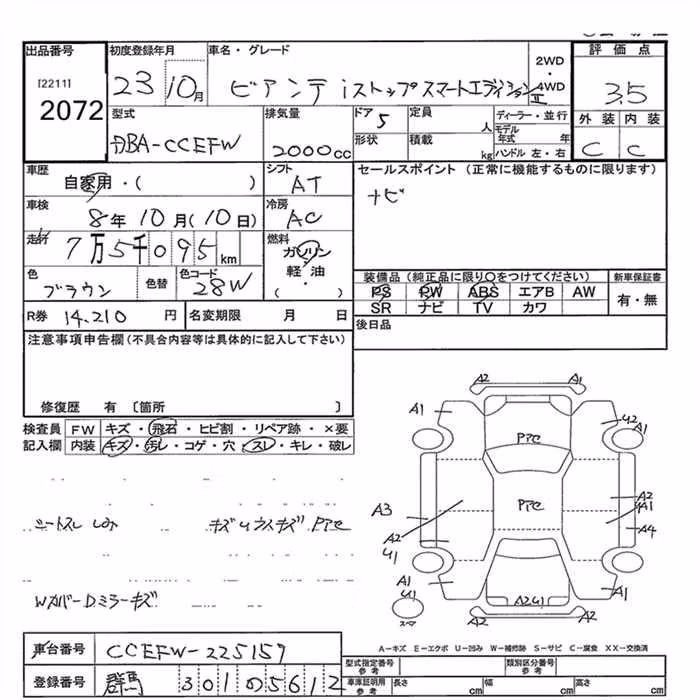 出品番号 初度登録年月 車名・グレード 2WD・4WD 評価点
[2211]
2072 23 10月 ビアンテ iストップスマートエディションII 3.5
型式 排気量 ドア 定員 ディーラー・並行 外装 内装
DBA-CCEFW 2000cc 5 人 モデル年式 年 C C
形状 積載 kg ハンドル 左・右
車歴 シフト セールスポイント(正常に機能するものに限ります)
自家用・( ) AT ナビ
車検 冷房
8年10月(10日) AC
走行 燃料
7万5千095km ガソリン
軽油・
( )
色 色替 色コード 装備品(純正品に限り○をつけてください) 新車保証書
ブラウン 28W PS PW ABS エアB AW 有・無
SR ナビ TV カワ
R券 14,210 円 名変期限 月 日 後日品
注意事項申告欄(不具合内容等は具体的に記入して下さい)
修復歴 有〔箇所 〕
検査員 FW キズ・飛石・ヒビ割・リペア跡・×要
記入欄 内装 キズ・汚レ・コゲ・穴・スレ・キレ・破レ
A2 A1
A1 U2 A1
Pアセ
Pアセ A2 A1
A3 A4
A2
U1
シートスレ シミ キズ U ウスキズ Pアセ
A1 A1
U1 A2U1
スペア A2 A2
WカバーDミラーキズ
車台番号 CCEFW-225157
A-キズ E-エクボ U-凹み W-補修跡 S-サビ C-腐食 XX-交換済
登録番号 群馬 301 の 5612
型式指定番号 参考 類別区分番号 参考
車庫証明用 参考 長さ cm 幅 cm 高さ cm